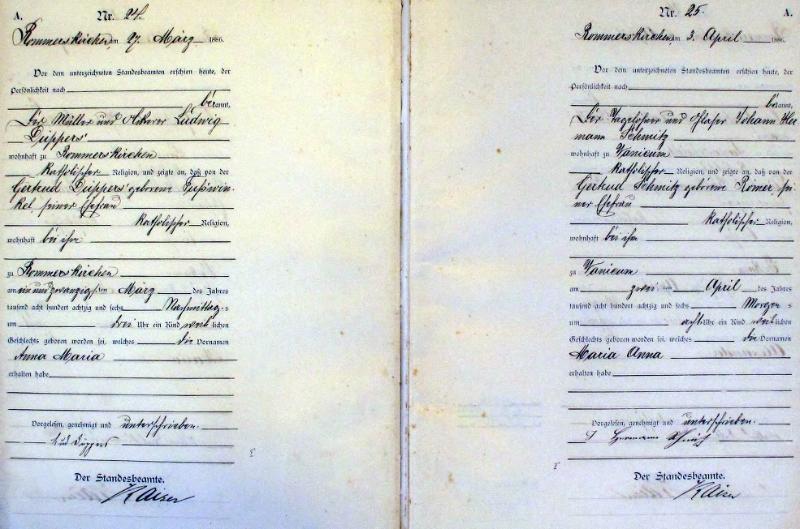 A. Nr. 24.
Rommerskirchen, am 27. März 1886.
Vor dem unterzeichneten Standesbeamten erschien heute, der
Persönlichkeit nach
bekannt,
Der Müller und Ackerer Ludwig
Düppers
wohnhaft zu Rommerskirchen
Katholischer Religion, und zeigte an, daß von der
Gertrud Düppers geborene
seiner Ehefrau
Katholischer Religion,
wohnhaft bei ihm
zu Rommerskirchen
am ein und zwanzigsten März des Jahres
tausend acht hundert achtzig und sechs Nachmittags
um drei Uhr ein Kind weiblichen
Geschlechts geboren worden sei, welches die Vornamen
Anna Maria
erhalten habe
Vorgelesen, genehmigt und unterschrieben.
Lud Düppers
Der Standesbeamte.
Kaiser
Nr. 25. A.
Rommerskirchen, am 3. April 1886.
Vor dem unterzeichneten Standesbeamten erschien heute, der
Persönlichkeit nach
bekannt,
Der Tagelöhner und Glaser Johann Her
mann Schmitz
wohnhaft zu Vanicum
Katholischer Religion, und zeigte an, daß von der
Gertrud Schmitz geborene Römer sei
ner Ehefrau
Katholischer Religion,
wohnhaft bei ihm
zu Vanicum
am zwei April des Jahres
tausend acht hundert achtzig und sechs Morgens
um acht Uhr ein Kind weiblichen
Geschlechts geboren worden sei, welches die Vornamen
Maria Anna
erhalten habe
Vorgelesen, genehmigt und unterschrieben.
Hermann
Der Standesbeamte.
Kaiser